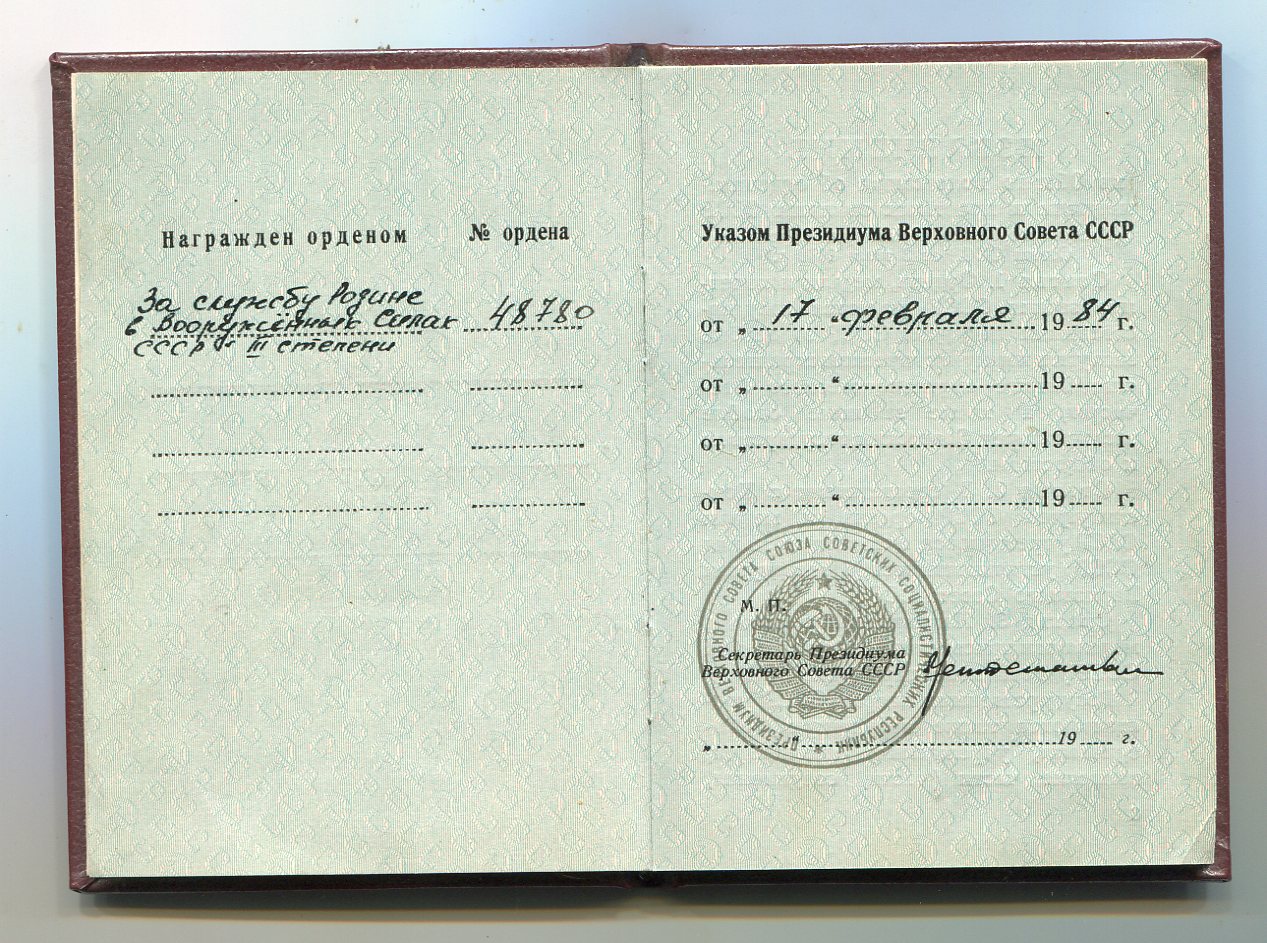 Награжден орденом
№ ордена
За службу Родине
в Вооружённых Силах
СССР" III степени
48780
Указом Президиума Верховного Совета СССР
от „ 17 “ февраля 19 84 г.
от „ “ 19 г.
от „ “ 19 г.
от „ “ 19 г.
ПРЕЗИДИУМ ВЕРХОВНОГО СОВЕТА СОЮЗА СОВЕТСКИХ СОЦИАЛИСТИЧЕСКИХ РЕСПУБЛИК
М. П.
Секретарь Президиума
Верховного Совета СССР
„ “ 19 г.